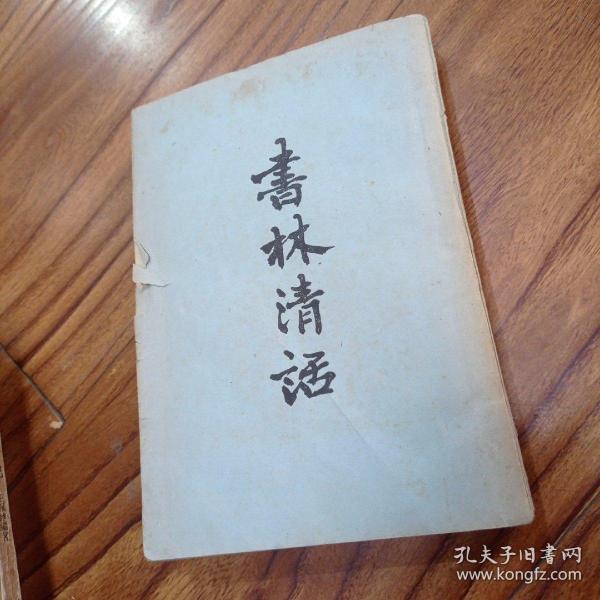 書林清話
孔夫子旧書网
www.kongfz.com